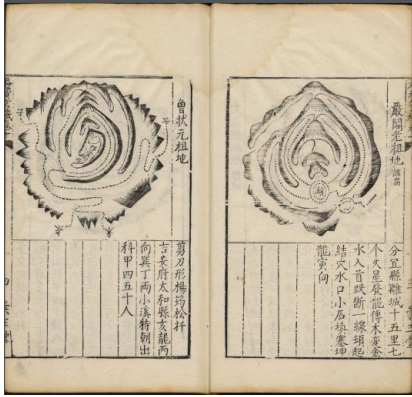 嚴閣老祖地 諱嵩
分宜縣離城十五里七
个火星發龍傳木變金
水入首跌斷一線頭起
結穴水口小石填塞坤
龍寅向
曾狀元祖地
剪刀形楊筠松扞
吉安府太和縣亥龍丙
向巽丁兩小溪特朝出
科甲四五十人